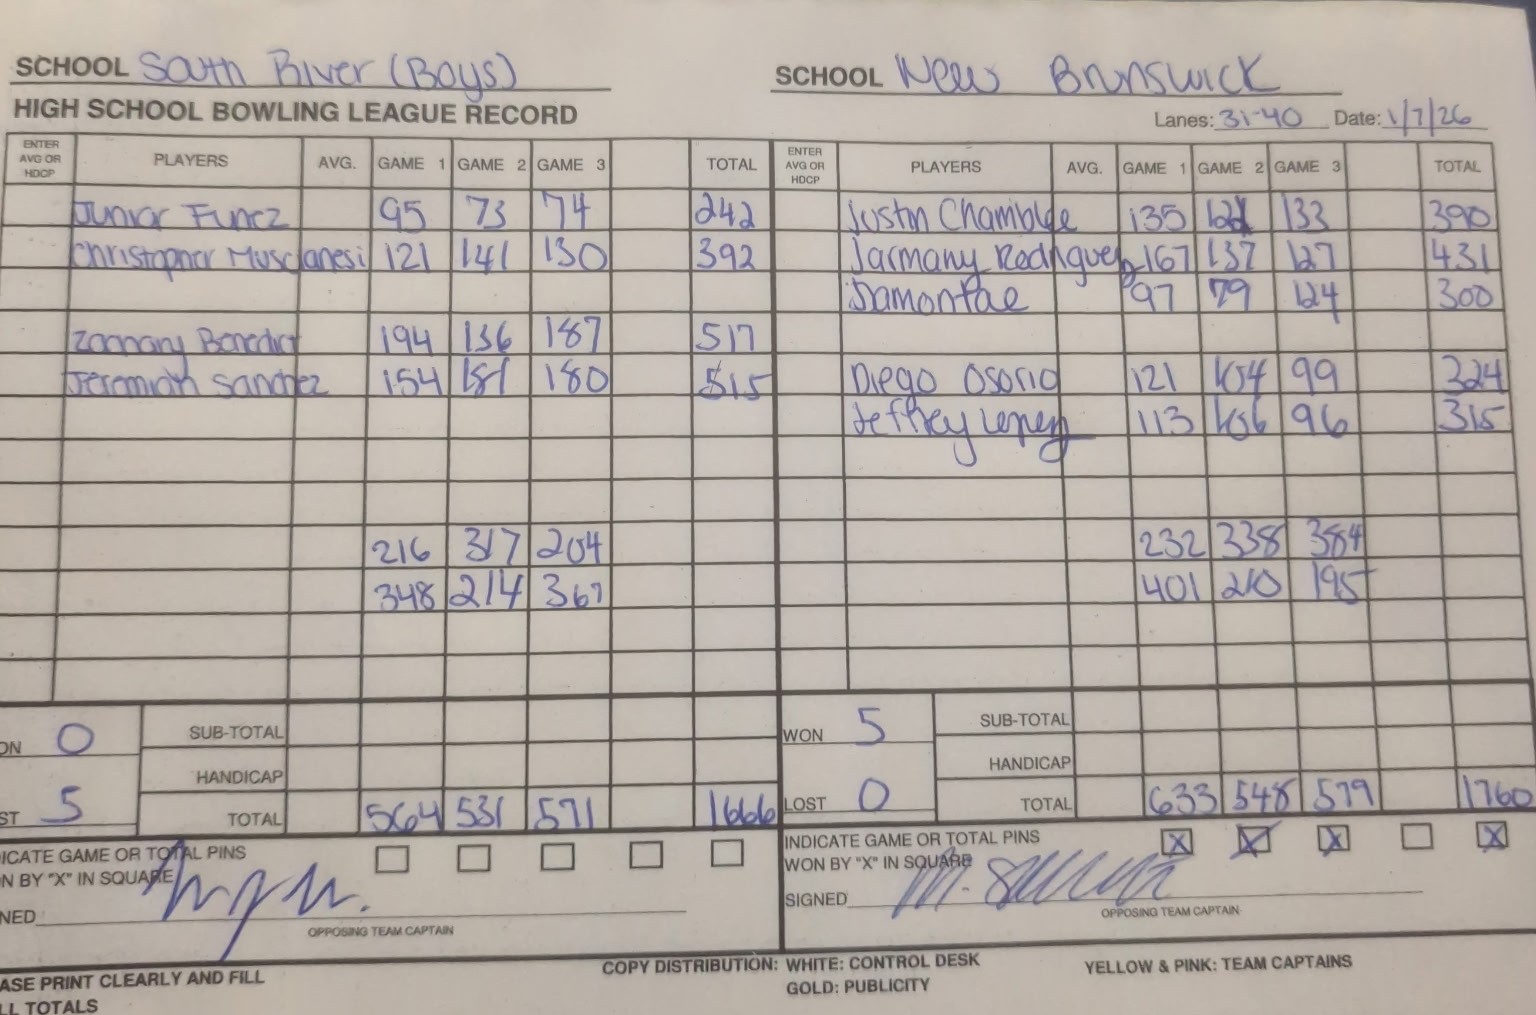 SCHOOL South River (Boys)
SCHOOL New Brunswick
HIGH SCHOOL BOWLING LEAGUE RECORD
Lanes: 31-40 Date: 1/7/26
ENTER AVG OR HDCP PLAYERS AVG. GAME 1 GAME 2 GAME 3 TOTAL ENTER AVG OR HDCP PLAYERS AVG. GAME 1 GAME 2 GAME 3 TOTAL
Junior Funez 95 73 74 242 Justin Chamblee 135 133 390
Christopher Musclanesi 121 141 130 392 Jarmany Rodriguez 167 137 127 431
Damontae 97 79 124 300
Zachary Benedict 194 136 187 517
Jeremiah Sanchez 154 181 180 515 Diego Osorio 121 104 99 324
Jeffrey Lopez 113 106 96 315
216 317 204 232 338 384
348 214 367 401 210 195
ON 0 SUB-TOTAL WON 5 SUB-TOTAL
HANDICAP HANDICAP
ST 5 TOTAL 564 531 571 1666 LOST 0 TOTAL 633 548 579 1760
ICATE GAME OR TOTAL PINS INDICATE GAME OR TOTAL PINS X X X X
N BY "X" IN SQUARE WON BY "X" IN SQUARE
NED SIGNED
OPPOSING TEAM CAPTAIN OPPOSING TEAM CAPTAIN
ASE PRINT CLEARLY AND FILL COPY DISTRIBUTION: WHITE: CONTROL DESK YELLOW & PINK: TEAM CAPTAINS
LL TOTALS GOLD: PUBLICITY